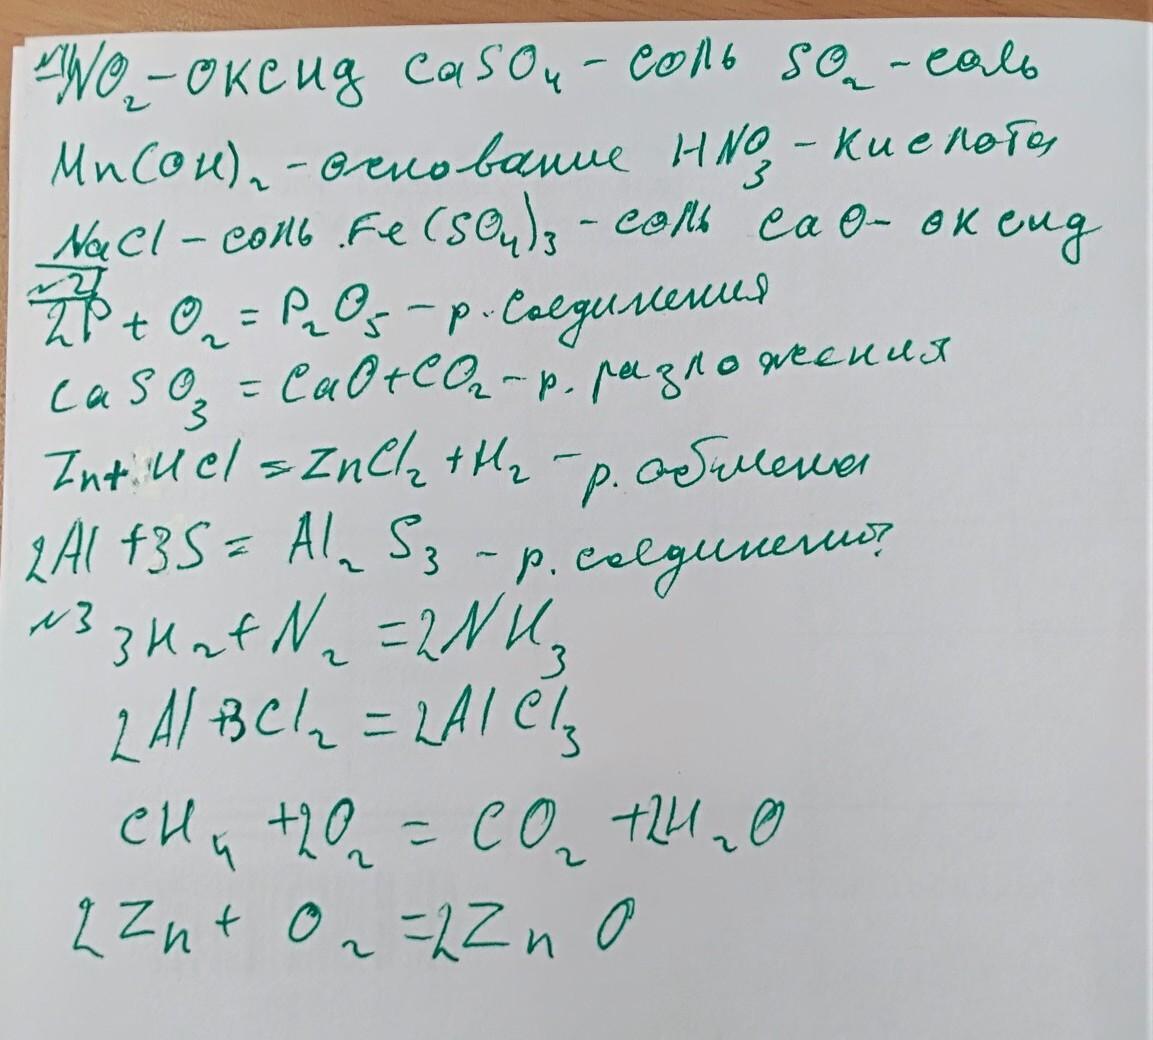 №1 NO₂ - оксид CaSO₄ - соль SO₂ - соль
Mn(OH)₂ - основание HNO₃ - кислота
NaCl - соль Fe(SO₄)₃ - соль CaO - оксид
№2
2P + O₂ = P₂O₅ - р. соединения
CaSO₃ = CaO + CO₂ - р. разложения
Zn + HCl = ZnCl₂ + H₂ - р. обмена
2Al + 3S = Al₂S₃ - р. соединения?
№3 3H₂ + N₂ = 2NH₃
2Al + 3Cl₂ = 2AlCl₃
CH₄ + 2O₂ = CO₂ + 2H₂O
2Zn + O₂ = 2ZnO